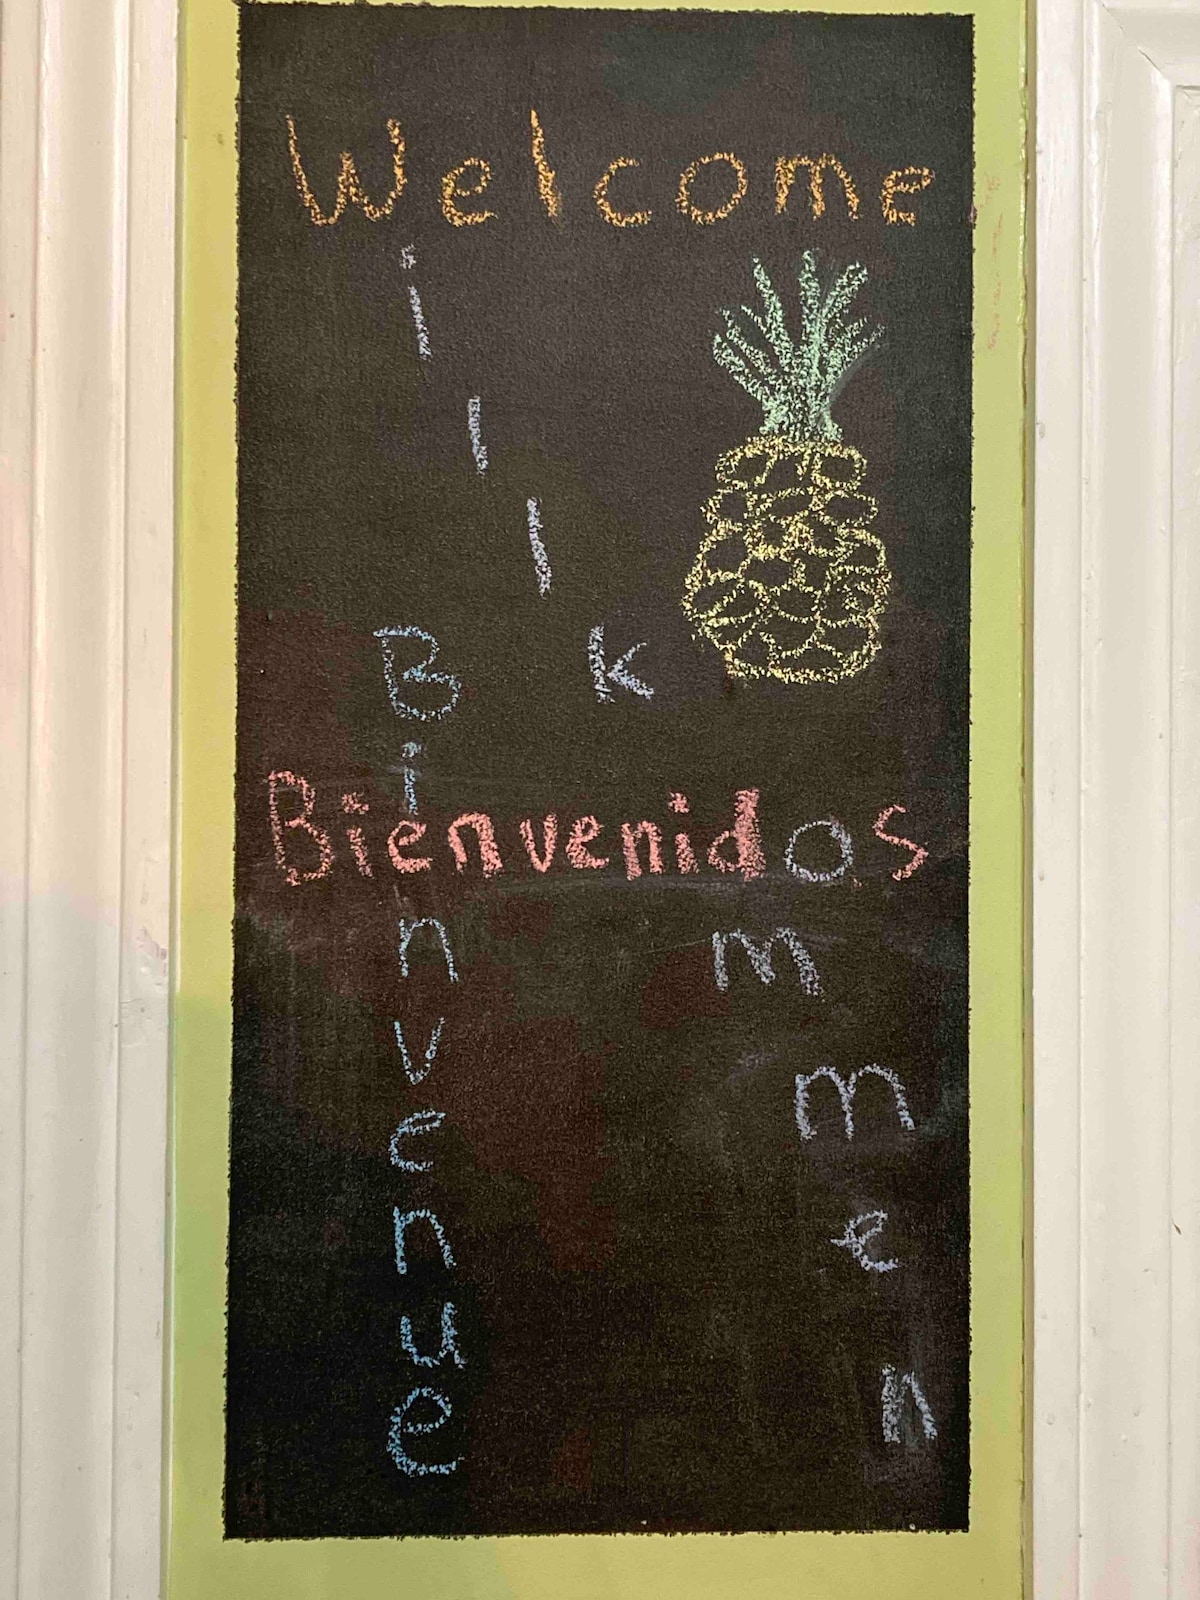 Welcome
Willkommen
Bienvenue
Bienvenidos